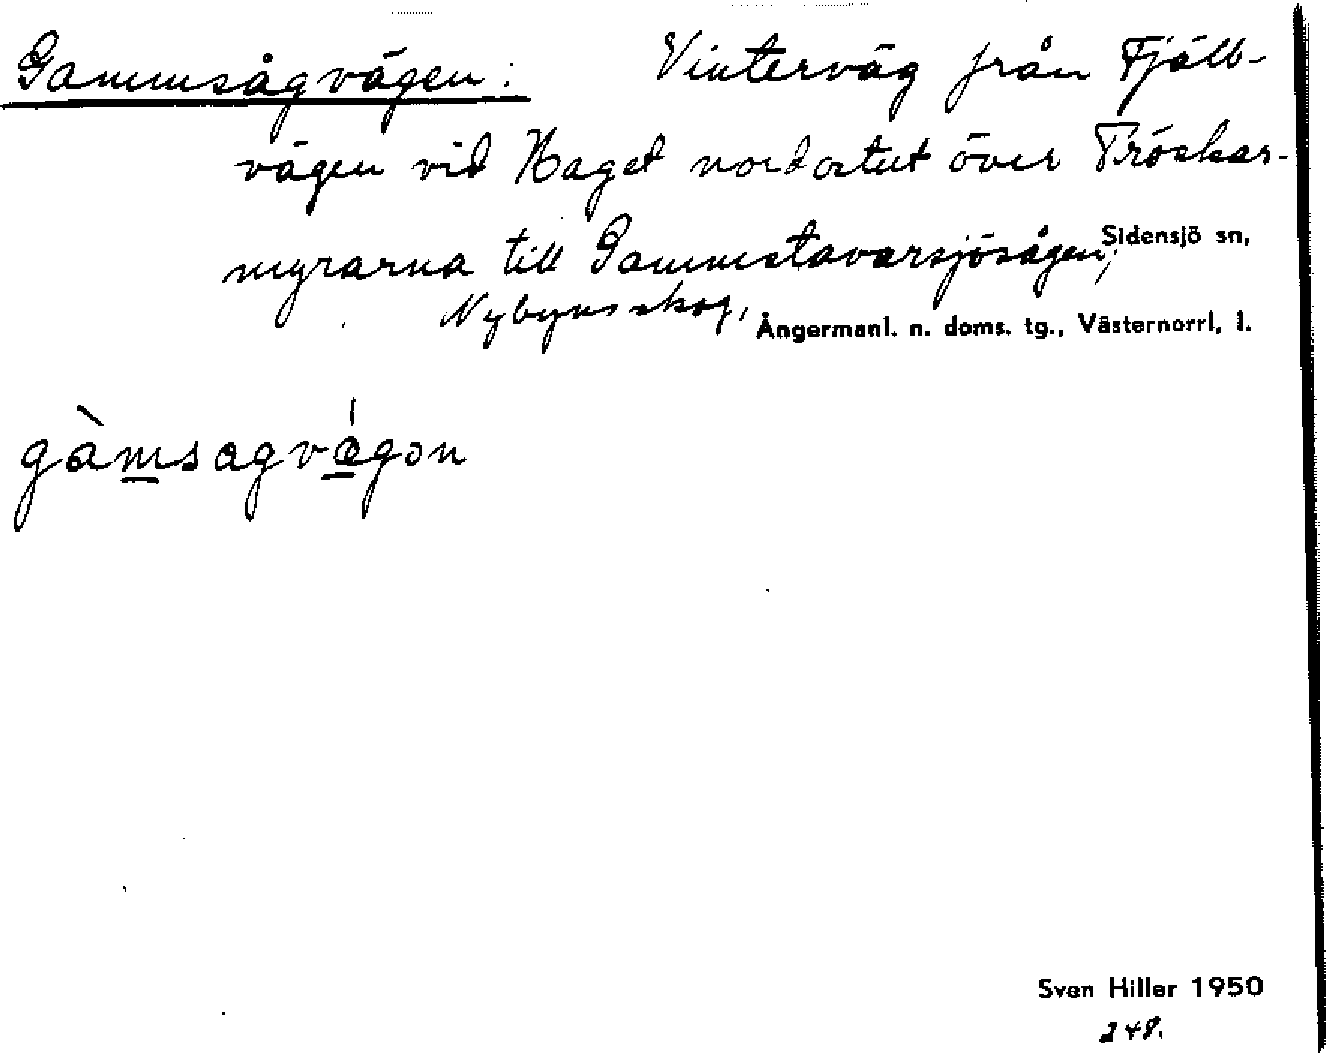 Gammsågvägen: Vinterväg från Fjäll-
vägen vid Haget nordostut över Tröskar-
myrarna till Gammstavarsjösågen, Sidensjö sn,
Nybynsskog, Ångermanl. n. doms. tg., Västernorrl. l.
gàmsagvágən
Sven Hiller 1950
248.